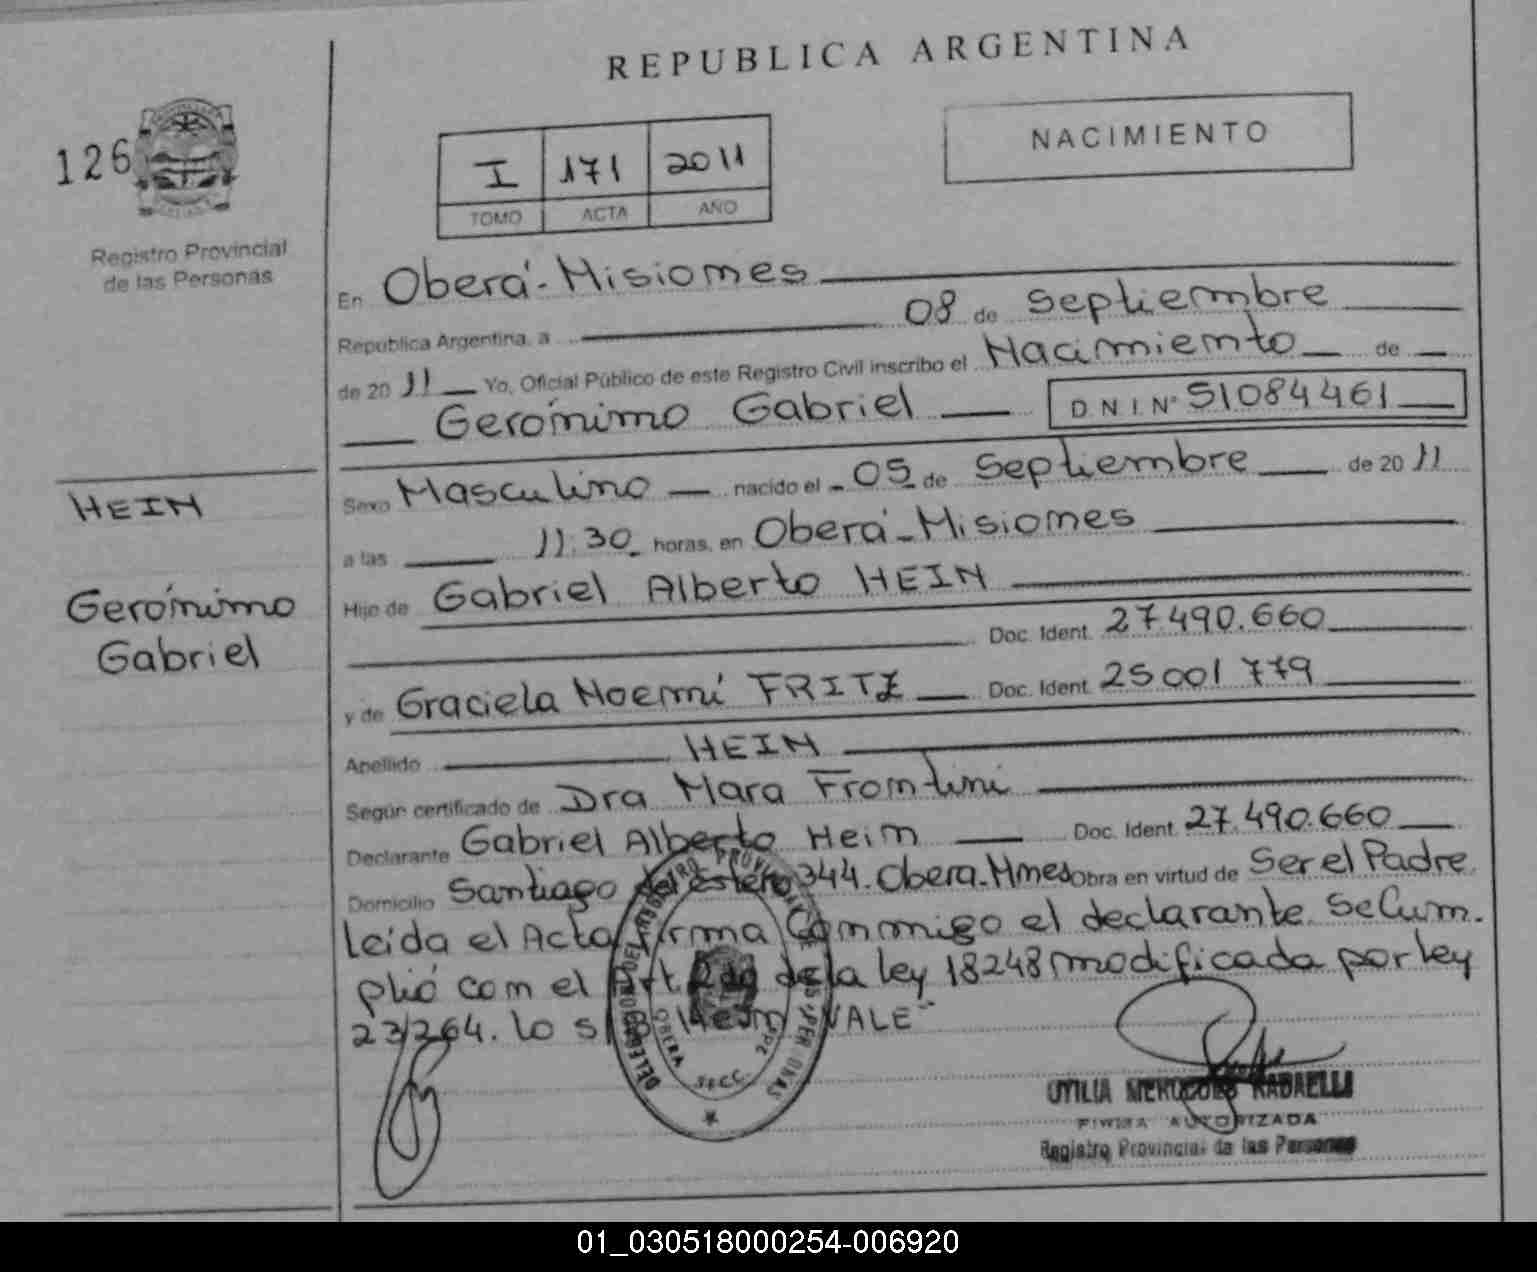 REPUBLICA ARGENTINA
126
NACIMIENTO
I 171 2011
TOMO ACTA AÑO
Registro Provincial
de las Personas
En Oberá-Misiones
Republica Argentina, a 08 de Septiembre
de 2011 Yo, Oficial Público de este Registro Civil inscribo el Nacimiento de
Gerónimo Gabriel D.N.I. Nº 51084461
Sexo Masculino nacido el 05 de Septiembre de 2011
a las 11:30 horas, en Oberá-Misiones
HEIN
Gerónimo
Gabriel
Hijo de Gabriel Alberto HEIN
Doc. Ident. 27.490.660
y de Graciela Noemí FRITZ Doc. Ident. 25001779
Apellido HEIN
Según certificado de Dra Mara Frontini
Declarante Gabriel Alberto Hein Doc. Ident. 27.490.660
Domicilio Santiago del Estero 344. Obera-Mnes Obra en virtud de Ser el Padre
leída el Acta firma Conmigo el declarante. Se Cum-
plió con el Art de la ley 18248 modificada por ley
23264. lo Hein VALE"
DELEGACION DEL REGISTRO PROVINCIAL DE LAS PERSONAS
OBERA SECC. 2da
MERCEDES RABAELLI
FIRMA AUTORIZADA
Registro Provincial de las Personas
01_030518000254-006920